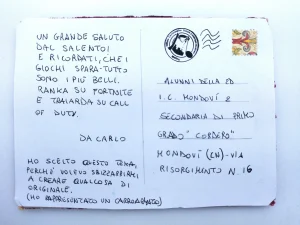 UN GRANDE SALUTO
DAL SALENTO!
E RICORDATI, CHE I
GIOCHI SPARA-TUTTO
SONO I PIÙ BELLI.
RANKA SU FORTNITE
E TRYHARDA SU CALL
OF DUTY.
DA CARLO
HO SCELTO QUESTO TEMA,
PERCHÉ VOLEVO SBIZZARRIRMI
A CREARE QUALCOSA DI
ORIGINALE.
(HO RAPPRESENTATO UN CARROARMATO)
ALUNNI DELLA 2D
I.C. MONDOVÌ 2
SECONDARIA DI PRIMO
GRADO "CORDERO"
MONDOVÌ (CN) - VIA
RISORGIMENTO N 16